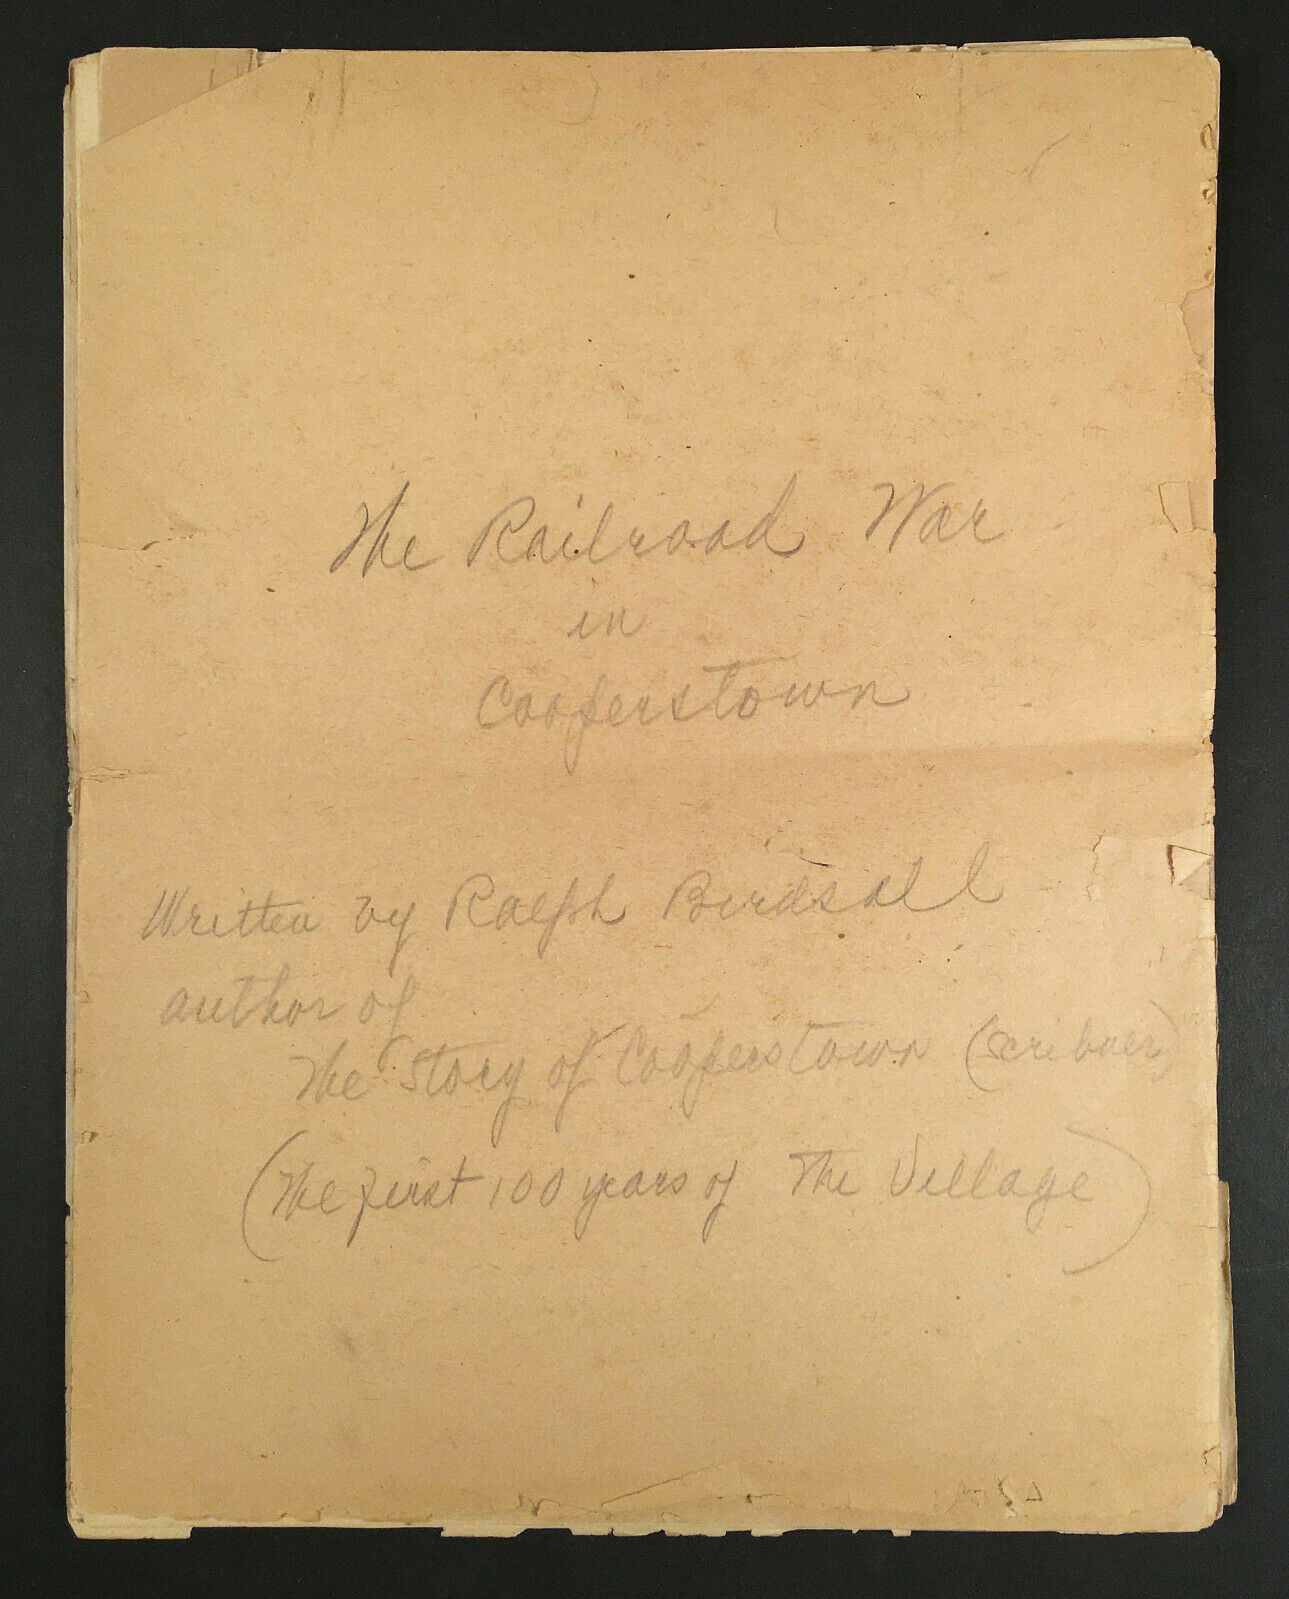 The Railroad War
in
Cooperstown
Written by Ralph Birdsall
author of
The Story of Cooperstown (Scribner)
(The first 100 years of The Village)